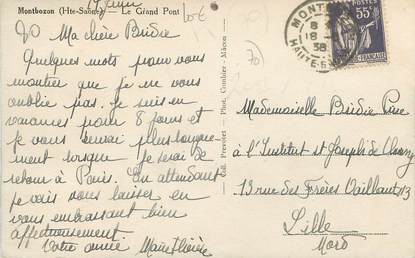 Montbozon (Hte-Saône) - Le Grand Pont
Ma chère Bridie
Quelques mots pour vous
montrer que je ne vous
oublie pas. Je suis en
vacances pour 8 jours et
je vous écrirai plus longue-
ment lorsque je serai de
retour à Paris. En attendant
je vais vous laisser en
vous embrassant bien
affectueusement
Votre amie Marie
Edit. Prenvier - Phot. Combier - Mâcon
MONT
8
18
38
HAUTE-S
POSTES
55c
Mademoiselle Bridie
à l'Institut St Joseph de Cluny
13 rue des Frères Vaillants 13
Lille
Nord